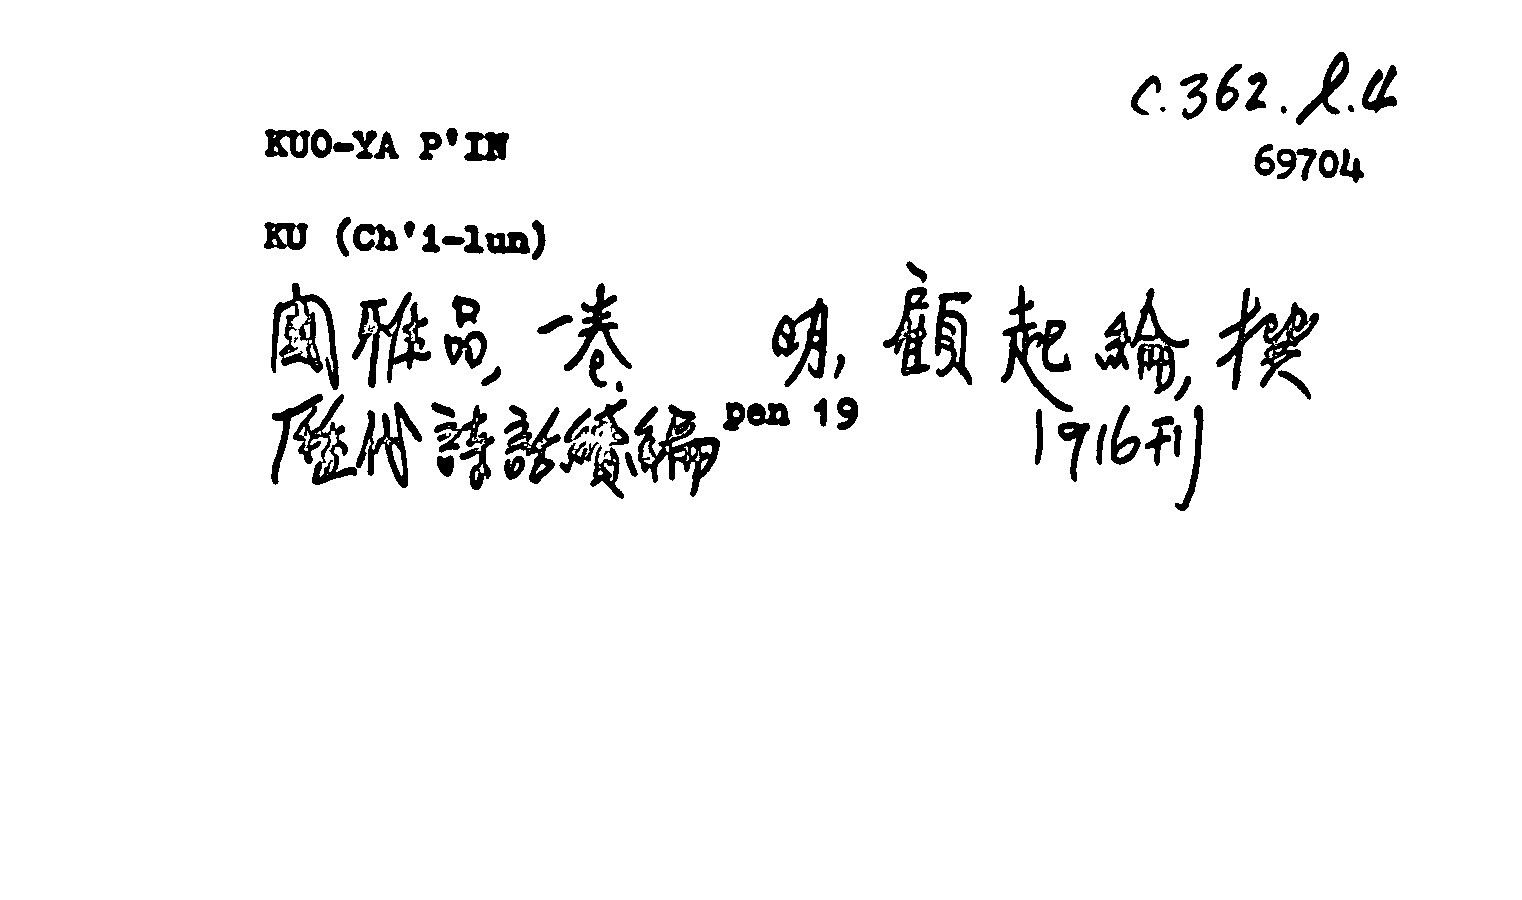 C.362.l.4
69704
KUO-YA P'IN
KU (Ch'i-lun)
國雅品, 一卷. 明, 顧起綸, 撰
歷代詩話續編 pen 19 1916刊